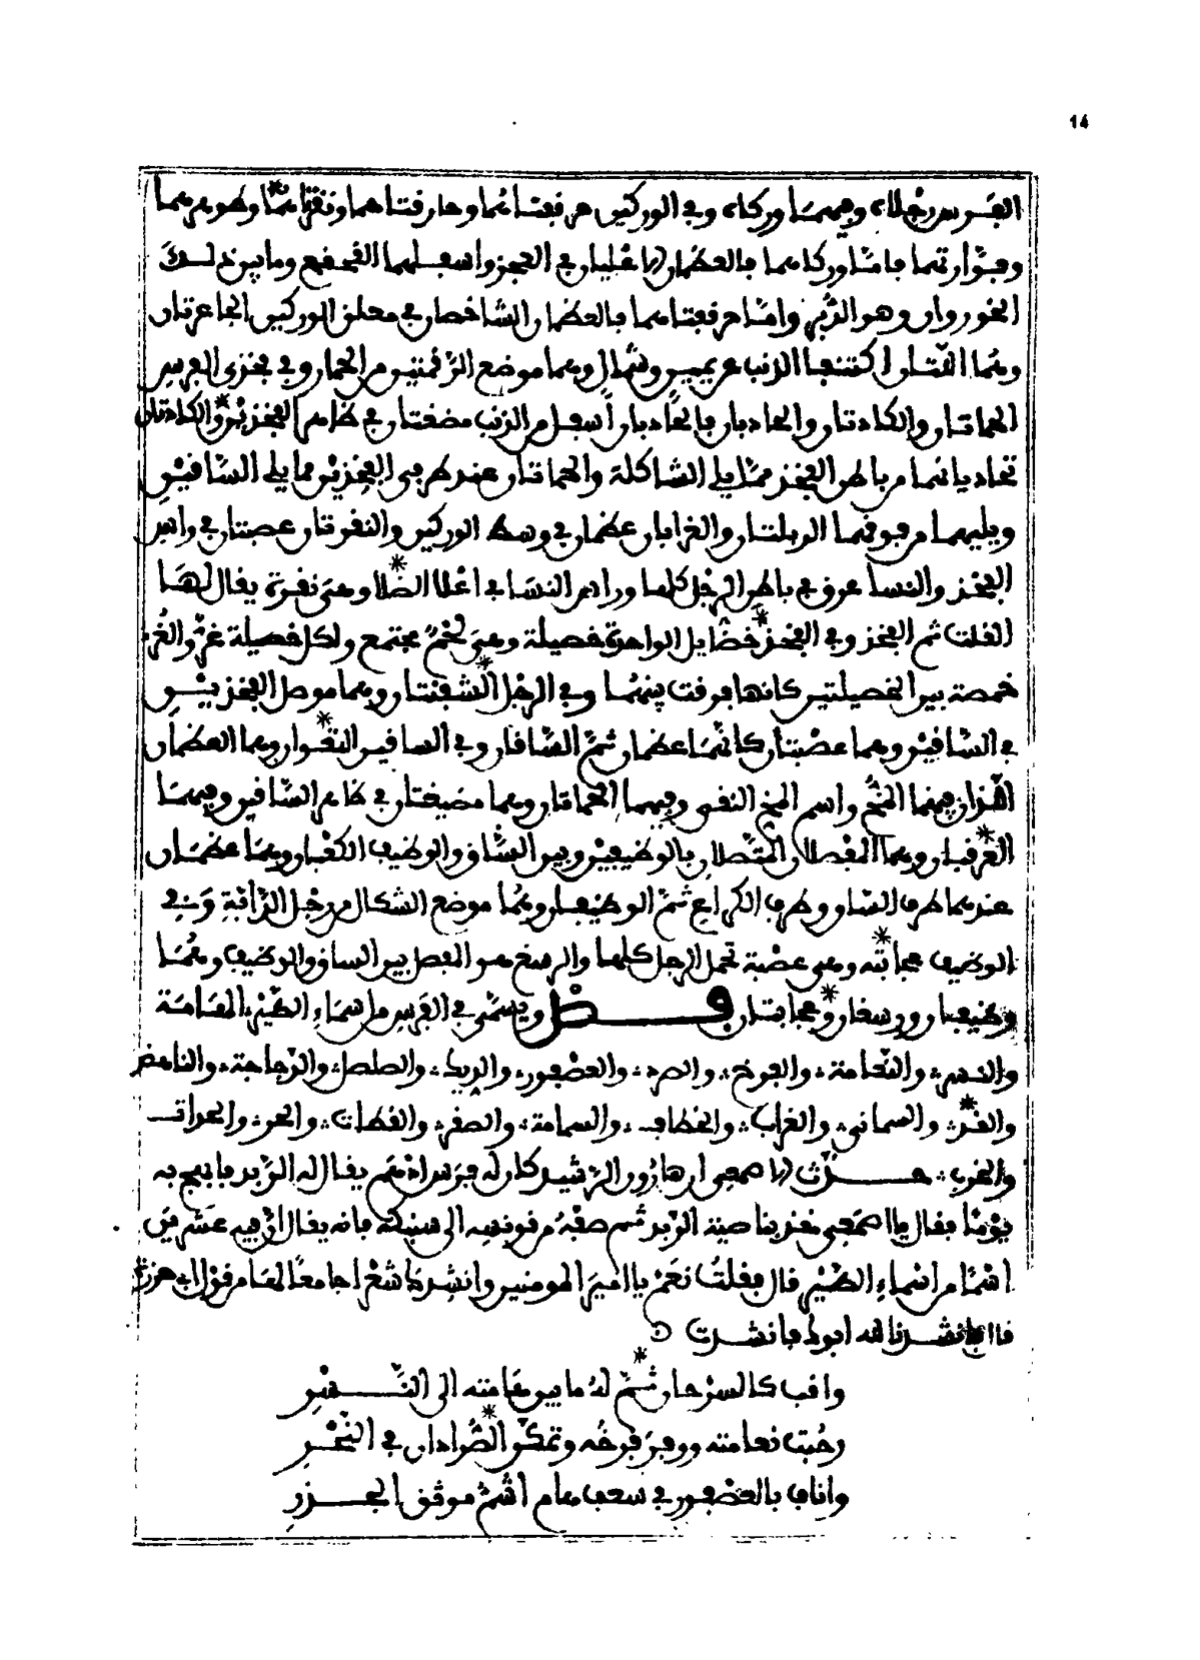 14
الفرس رجلاه وفيهما وركاه وفي الوركين حرقفتاهما وحارقتاهما ونقرتاهما وطوبرهما
وجوارتهما فاما وركاهما فالعظمان الاعليان في العجز واسفلهما القحقح وما بين ذلك
الخوروان وهو الدبر واما حرقفتاهما فالعظمان الشاخصان في معلق الوركين الجاعرتان
وهما اللتان اكتنفتا الذنب عن يمين وشمال وهما موضع الرقمتين من الحمار وفي فخذي الفرس
الحماتان والكاذتان والحاذبان فالحاذبان أسفل من الذنب مضغتان في ظاهر الفخذين والكاذتان
تحاذيانهما من باطن الفخذ مما يلي الشاكلة والحماتان عند طرفي الفخذين مما يلي الساقين
ويليهما من فوقهما الربلتان والغرابان عظمان في وسط الوركين والنفرقتان عصبتان في راس
الفخذ والنسا عرق في باطن الرجل كلها وراس النسا في اعلا الصلا وهي نقرة يقال لها
الفلت ثم الفخذ وفي الفخذ خصايل الواحدة خصيلة وهي لحم مجتمع ولكل خصيلة غر والغر
خمصة بين الخصيلتين كانها فرقت بينهما وفي الرجل الثفنتان وهما موصل الفخذين
في الساقين وهما عصبتان كانهما عظمان ثم الساقان وفي الساقين النقوان وهما العظمان
اللذان فيهما المخ واسم المخ النقي وفيهما الحماتان وهما مضيغتان في ظاهر الساقين وفيهما
العرقبان وهما المفصلان المتصلان بالوظيفين وبين الساق والوظيف الكعبان وهما عظمان
عندهما طرف الساق وطرف الكراع ثم الوظيفان وهما موضع الشكال من رجل الدابة وفي
الوظيف عجايته وهي عصبة تحمل الرجل كلها والرسغ هو المفصل بين الساق والوظيف وهما
وظيفان ورسغان وعجايتان فصل ويسمى في الفرس من اسماء الطير الهامة
والنسر والنعامة والفرخ والصرد والعصفور والديك والصلصل والدجاجة والناهض
والغر والسماني والغراب والخطاف والسمامة والصقر والقطاة والحر والحدات
والخرب حدث الاصمعي ان هارون الرشيد كان له فرس ادهم يقال له الزبد فابتهج به
يوما فقال يا اصمعي خذ بناصية الزبد ثم صفه من قونسه الى سنبكه فانه يقال ان فيه عشرين
اسما من اسماء الطير قال فقلت نعم يا امير المومنين وانشدنا شعرا جامعا لها من قول ابي حزرة
قال فانشدنا لله ابوك فانشدت
واقب كالسرحان ثم له ما بين هامته الى النسر
رحبت نعامته ووفر فرخه وتمكن الصردان في النحر
واناف بالعصفور في سعف هام اشم موثق الجذر